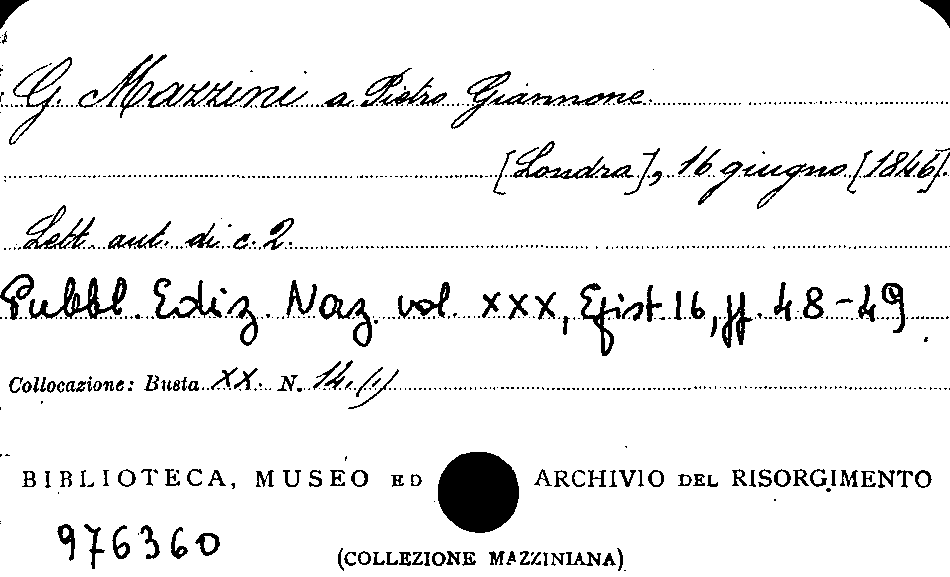 G. Mazzini a Pietro Giannone.
[Londra], 16 giugno [1846].
Lett. aut. di c. 2.
Pubbl. Ediz. Naz. vol. XXX, Epist. 16, pp. 48-49.
Collocazione: Busta XX. N. 14. (1)
BIBLIOTECA, MUSEO ED ARCHIVIO DEL RISORGIMENTO
976360
(COLLEZIONE MAZZINIANA)